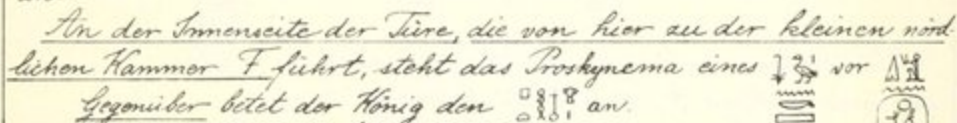 An der Innenseite der Türe, die von hier zu der kleinen nörd-
lichen Kammer F führt, steht das Proskynema eines vor
Gegenüber betet der König den an.